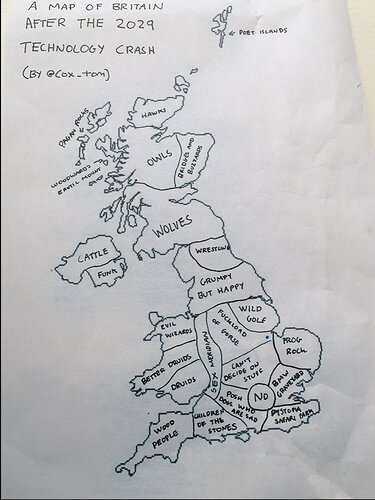 A MAP OF BRITAIN
AFTER THE 2029
TECHNOLOGY CRASH
(BY @COX_TOM)
POET ISLANDS
HAWKS
PAGAN ROCKS
OWLS
BRIDGES AND
BUZZARDS
WOODWARDS
WOLVES
WRESTLING
CATTLE
FUNK
GRUMPY
BUT HAPPY
WILD
GOLF
FUCKLOAD
OF GORSE
EVIL
WIZARDS
MERIDIAN
SEX
PROG
ROCK
BETTER DRUIDS
CAN'T
DECIDE ON
STUFF
DRUIDS
BMW
GRAVEYARD
POSH
DOGS WHO
ARE SAD
NO
WOOD
PEOPLE
CHILDREN
OF THE
STONES
DYSTOPIA
SAFARI PARK